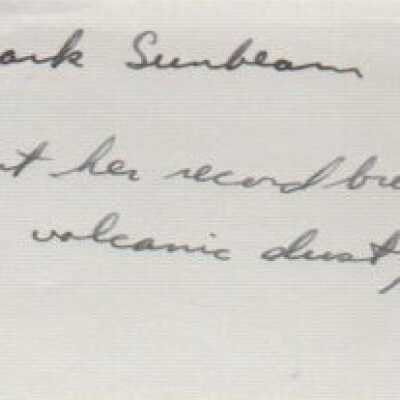 ark Sunbeam
t her record bre
volcanic dust,